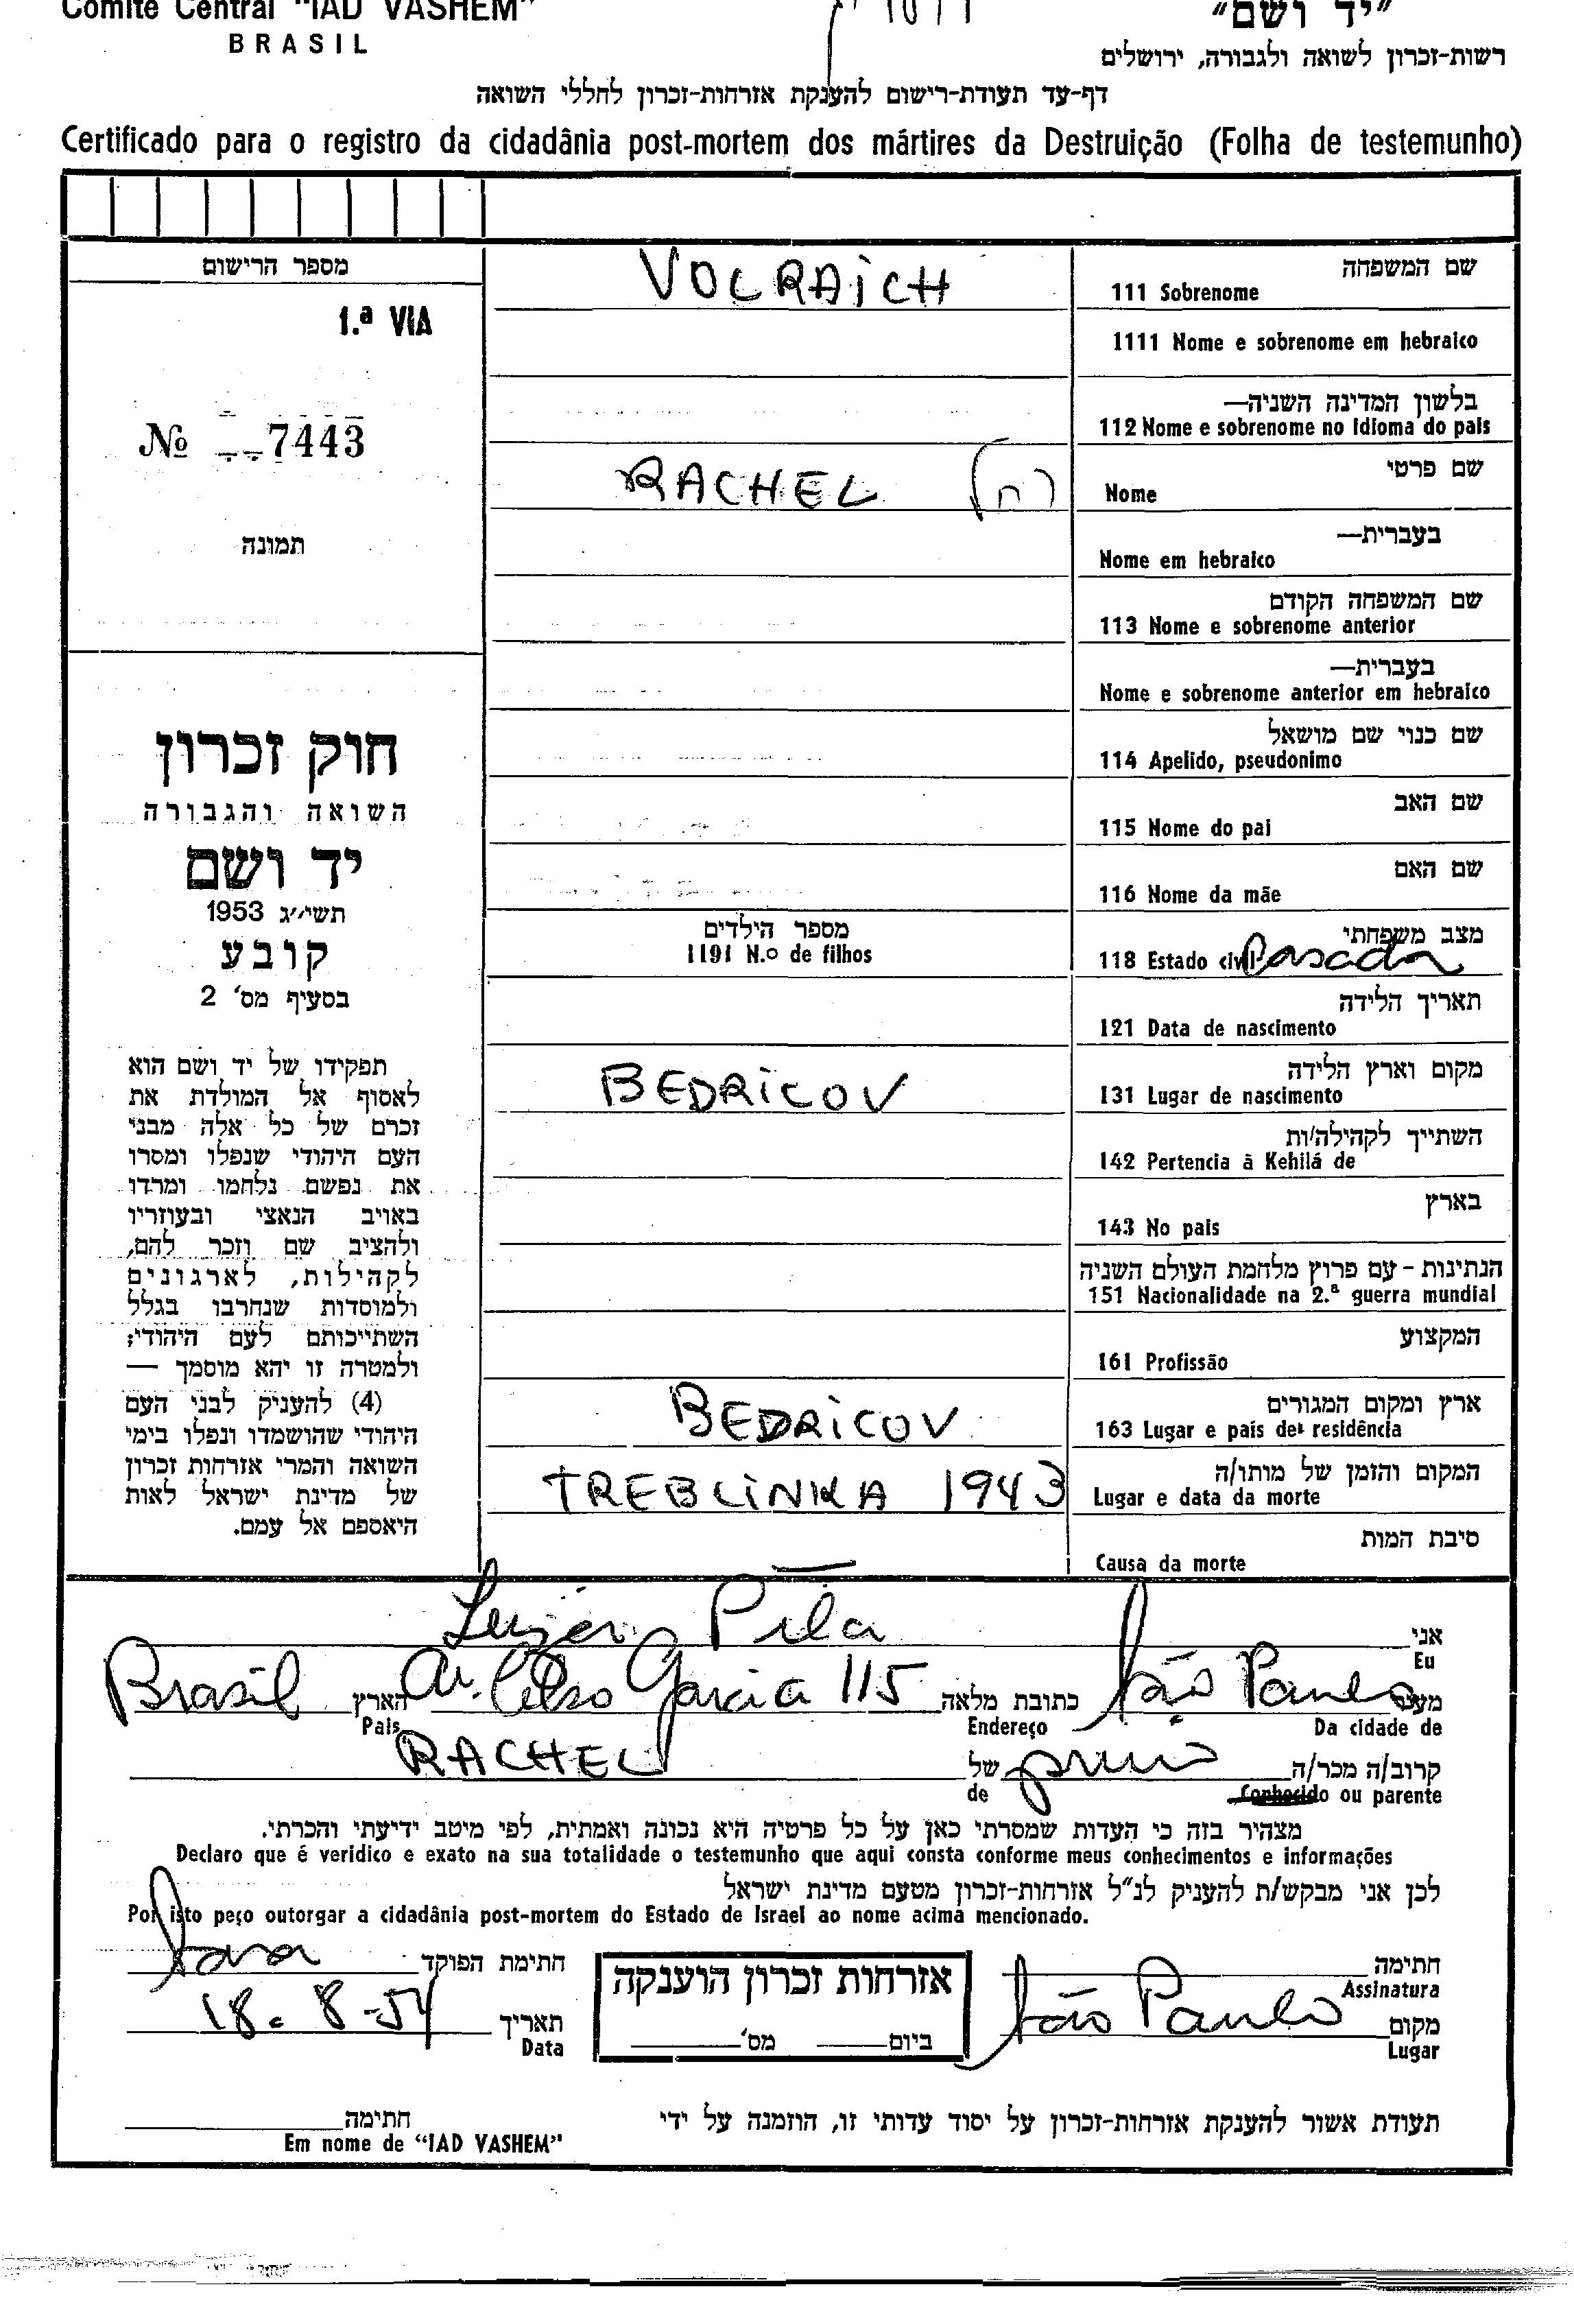 Comité Central "IAD VASHEM"
BRASIL
"יד ושם"
רשות-זכרון לשואה ולגבורה, ירושלים
דף-עד תעודת-רישום להענקת אזרחות-זכרון לחללי השואה
Certificado para o registro da cidadânia post-mortem dos mártires da Destruição (Folha de testemunho)
מספר הרישום
1.ª VIA
№ 7443
תמונה
חוק זכרון
השואה והגבורה
יד ושם
תשי״ג 1953
קובע
בסעיף מס' 2
תפקידו של יד ושם הוא
לאסוף אל המולדת את
זכרם של כל אלה מבני
העם היהודי שנפלו ומסרו
את נפשם נלחמו ומרדו
באויב הנאצי ובעוזריו
ולהציב שם וזכר להם,
לקהילות, לארגונים
ולמוסדות שנחרבו בגלל
השתייכותם לעם היהודי;
ולמטרה זו יהא מוסמך —
(4) להעניק לבני העם
היהודי שהושמדו ונפלו בימי
השואה והמרי אזרחות זכרון
של מדינת ישראל לאות
היאספם אל עמם.
שם המשפחה
111 Sobrenome VOLRAICH
1111 Nome e sobrenome em hebraico
בלשון המדינה השניה—
112 Nome e sobrenome no Idioma do pais
שם פרטי
Nome RACHEL (ח)
בעברית—
Nome em hebraico
שם המשפחה הקודם
113 Nome e sobrenome anterior
בעברית—
Nome e sobrenome anterior em hebraico
שם כנוי שם מושאל
114 Apelido, pseudonimo
שם האב
115 Nome do pai
שם האם
116 Nome da mãe
מצב משפחתי
118 Estado civil Casada
מספר הילדים
1191 N.o de filhos
תאריך הלידה
121 Data de nascimento
מקום וארץ הלידה
131 Lugar de nascimento BEDRICOV
השתייך לקהילה/ות
142 Pertencia à Kehilá de
בארץ
143 No pais
הנתינות - עם פרוץ מלחמת העולם השניה
151 Nacionalidade na 2.ª guerra mundial
המקצוע
161 Profissão
ארץ ומקום המגורים
163 Lugar e pais de residência BEDRICOV
המקום והזמן של מותו/ה
Lugar e data da morte TREBLINKA 1943
סיבת המות
Causa da morte
אני
Eu Pila
מעיר São Paulo כתובת מלאה Av. Celso Garcia 115 הארץ Brasil
Da cidade de Endereço Pais
קרוב/ה מכר/ה primo של RACHEL
Conhecido ou parente de
מצהיר בזה כי העדות שמסרתי כאן על כל פרטיה היא נכונה ואמתית, לפי מיטב ידיעתי והכרתי.
Declaro que é veridico e exato na sua totalidade o testemunho que aqui consta conforme meus conhecimentos e informações
לכן אני מבקש/ת להעניק לנ״ל אזרחות-זכרון מטעם מדינת ישראל
Por isto peço outorgar a cidadânia post-mortem do Estado de Israel ao nome acima mencionado.
חתימה
Assinatura
אזרחות זכרון הוענקה
ביום מס'
חתימת הפוקד
מקום São Paulo
Lugar
תאריך 18-8-54
Data
תעודת אשור להענקת אזרחות-זכרון על יסוד עדותי זו, הוזמנה על ידי
חתימה
Em nome de "IAD VASHEM"